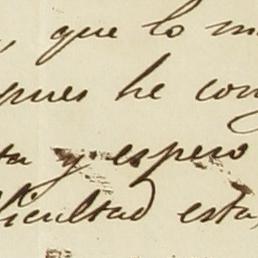 , que lo m
pues he con
ta y espero
ficultad esta,